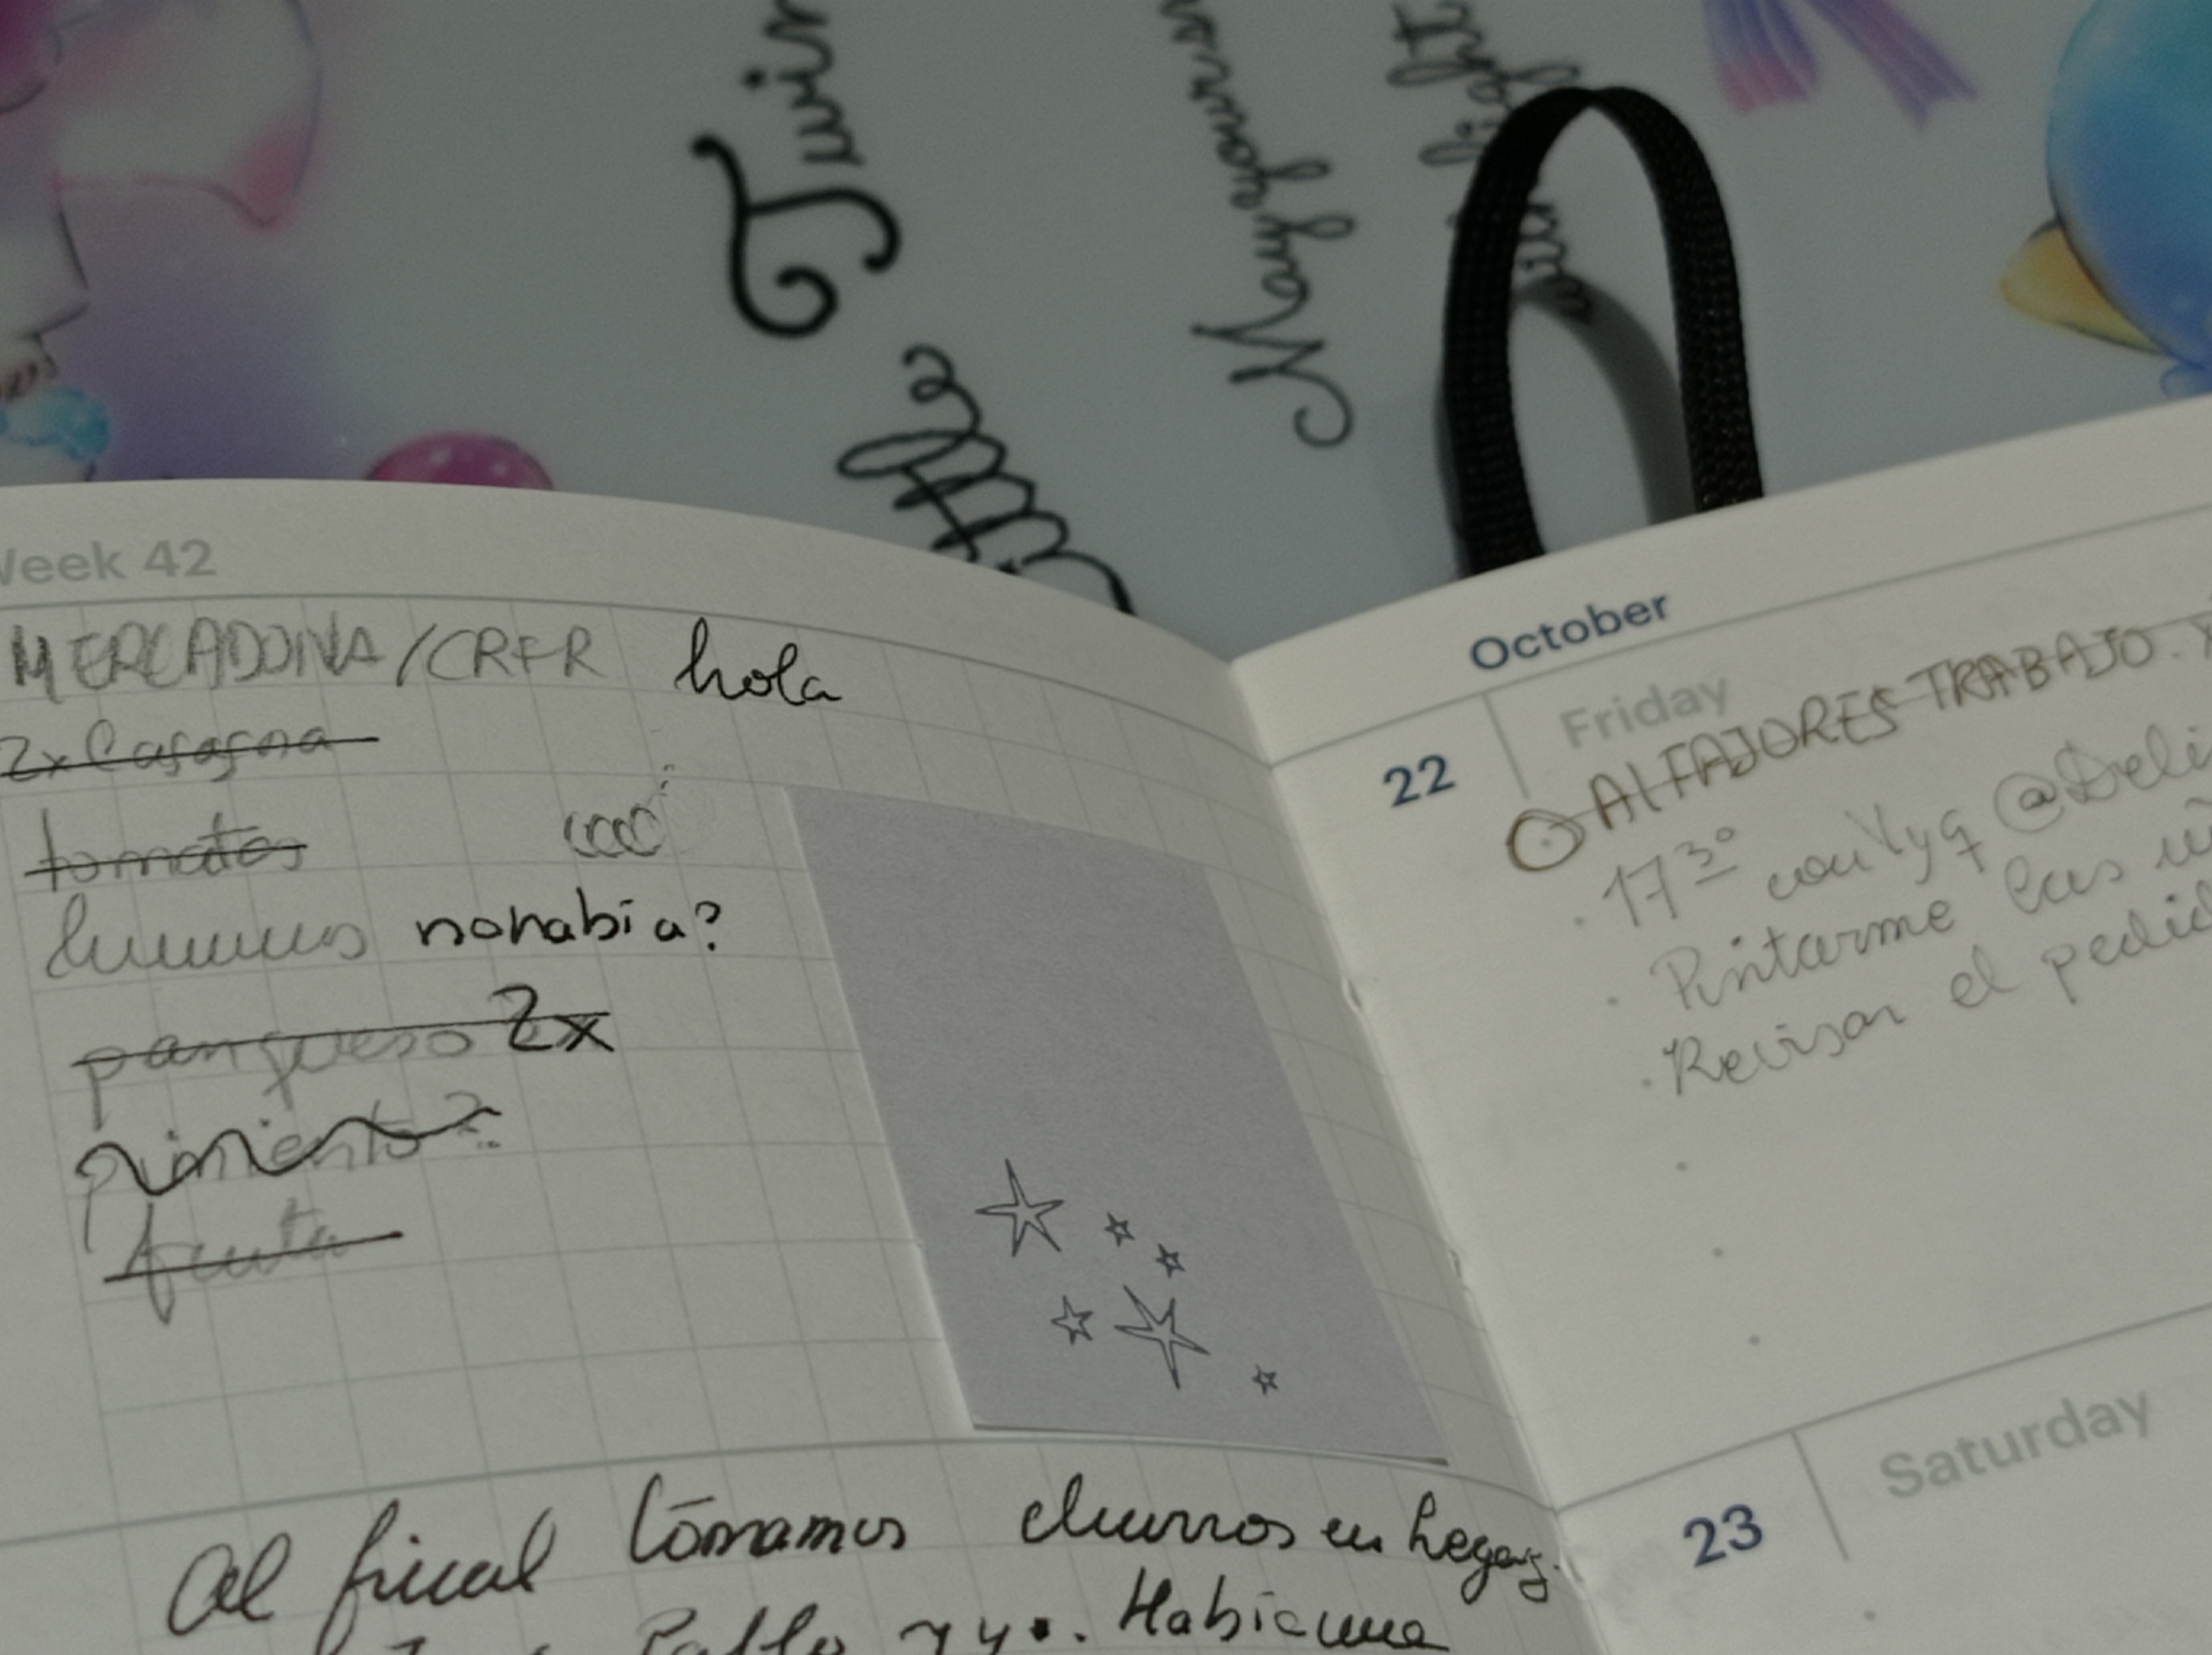 Twin
Little
May your
light
Week 42
MERCADONA/CRFR hola
2x lasagna
tomates
hummus no había?
pan queso 2x
pimiento?
fruta
Al final tomamos churros en
Pablo y yo. Había una
October
22 Friday
ALFAJORES TRABAJO.
· 17 3º con V y q @Deli
· Pintarme las
· Revisar el pedid
23 Saturday